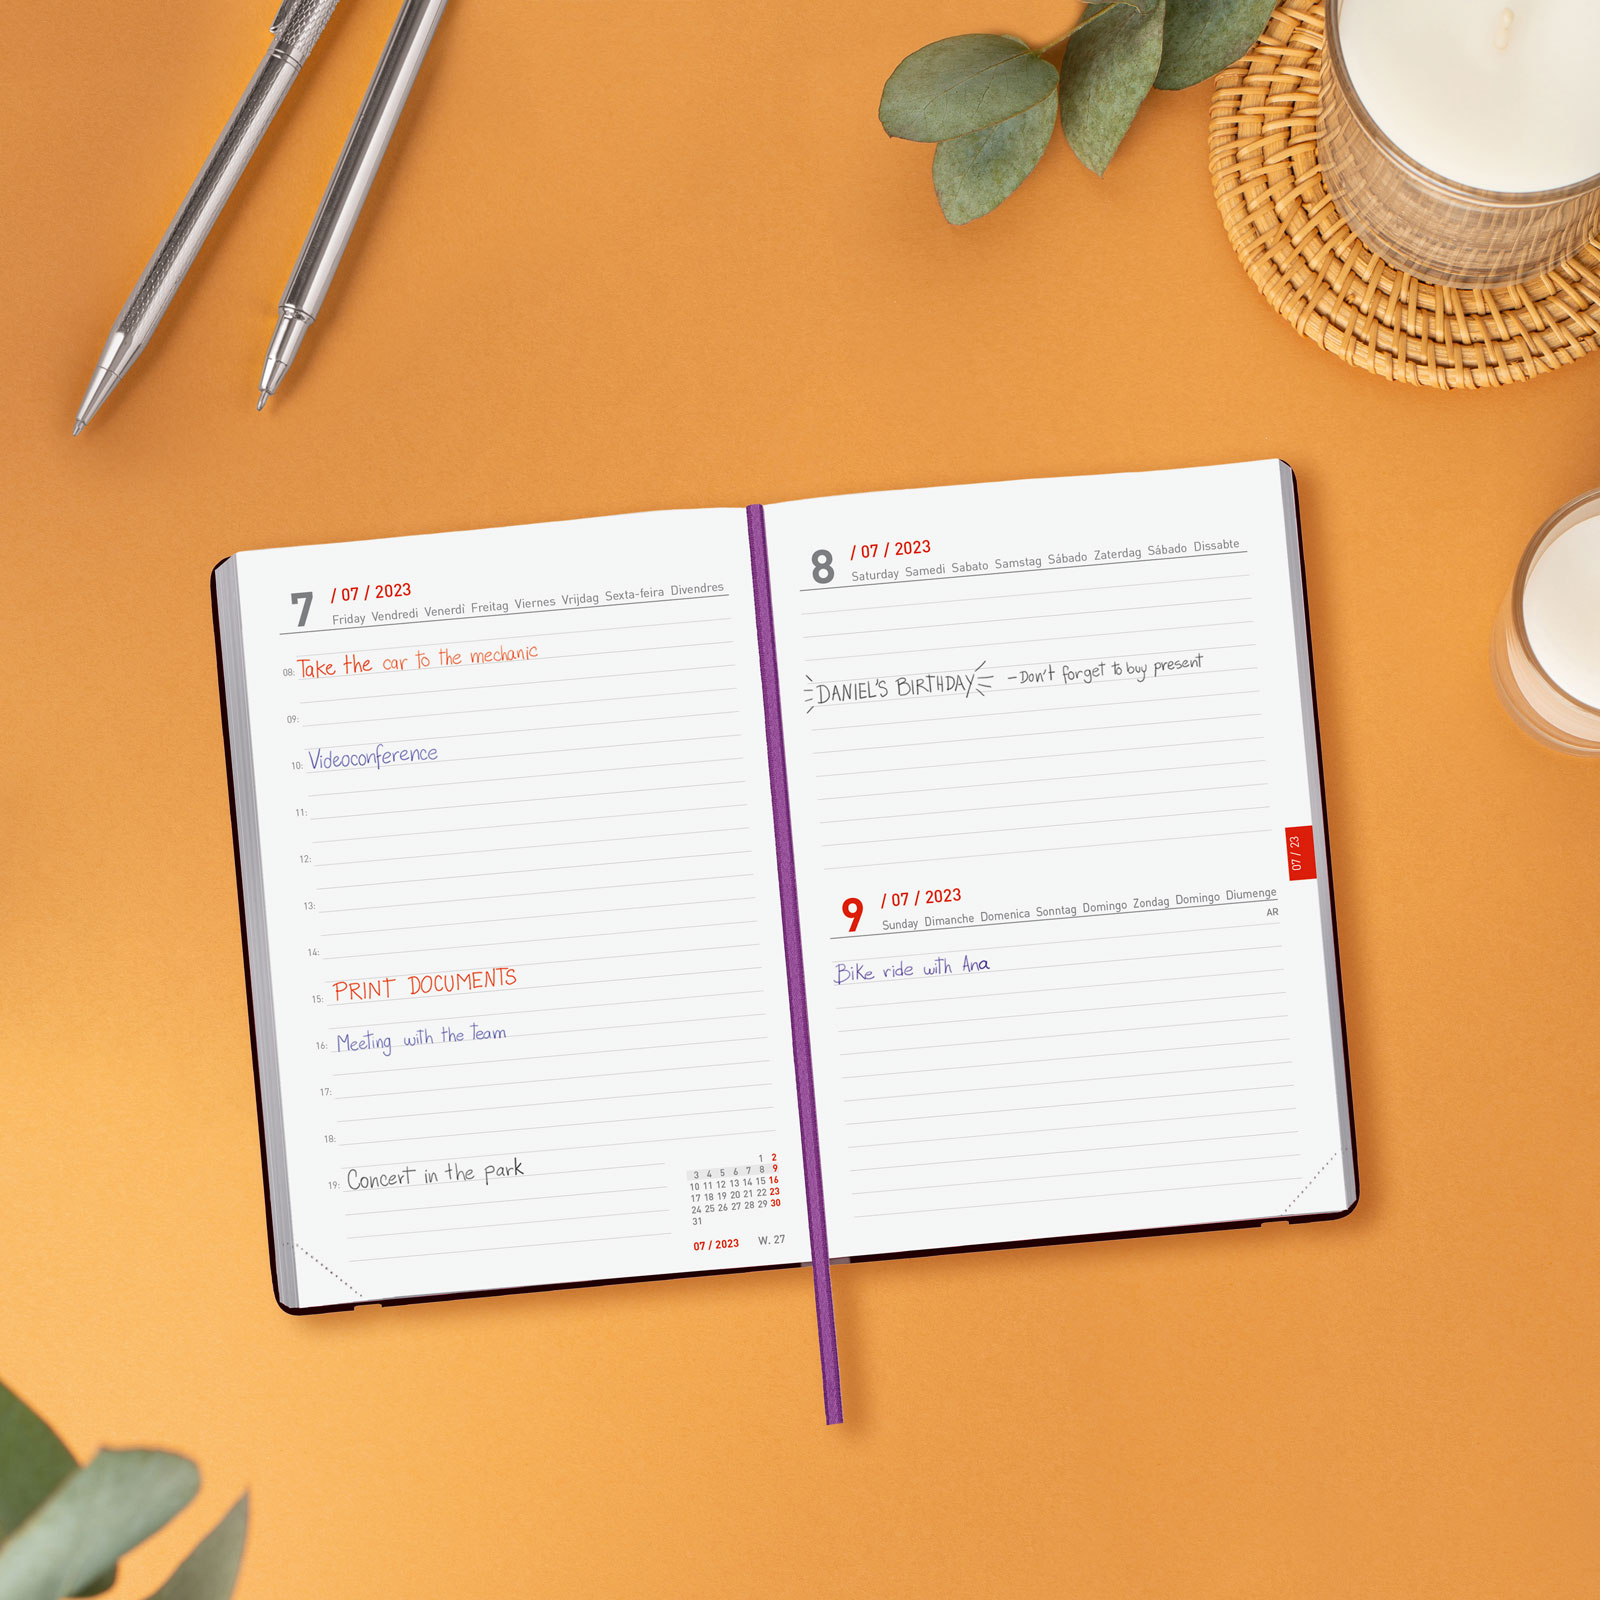 7 / 07 / 2023
Friday Vendredi Venerdì Freitag Viernes Vrijdag Sexta-feira Divendres
08: Take the car to the mechanic
09:
10: Videoconference
11:
12:
13:
14:
15: PRINT DOCUMENTS
16: Meeting with the team
17:
18:
19: Concert in the park
1 2
3 4 5 6 7 8 9
10 11 12 13 14 15 16
17 18 19 20 21 22 23
24 25 26 27 28 29 30
31
07 / 2023 W. 27
8 / 07 / 2023
Saturday Samedi Sabato Samstag Sábado Zaterdag Sábado Dissabte
DANIEL'S BIRTHDAY - Don't forget to buy present
07 / 23
9 / 07 / 2023
Sunday Dimanche Domenica Sonntag Domingo Zondag Domingo Diumenge
AR
Bike ride with Ana